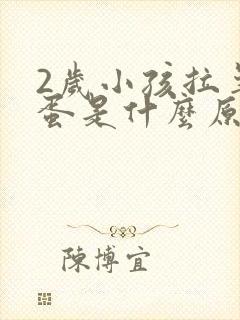 2歲小孩拉
蛋是什麼原
陳博宜